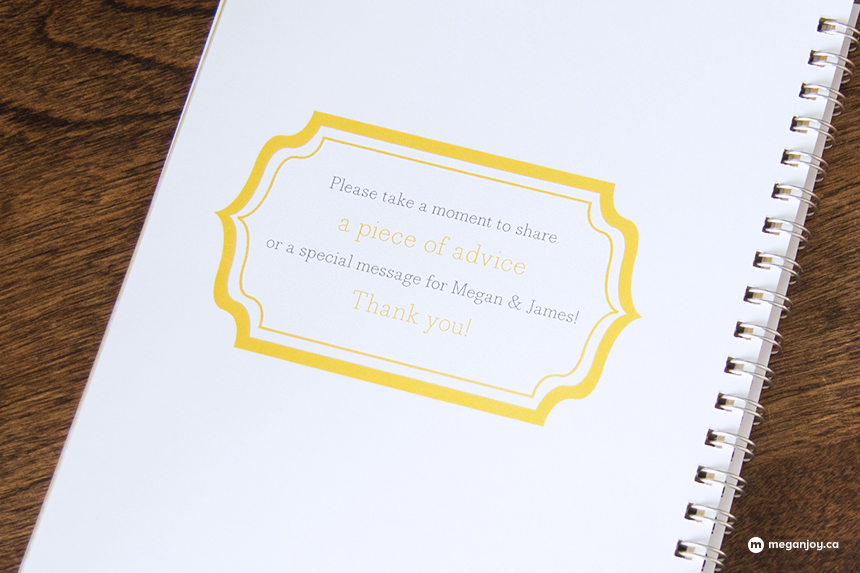 Please take a moment to share
a piece of advice
or a special message for Megan & James!
Thank you!
m meganjoy.ca